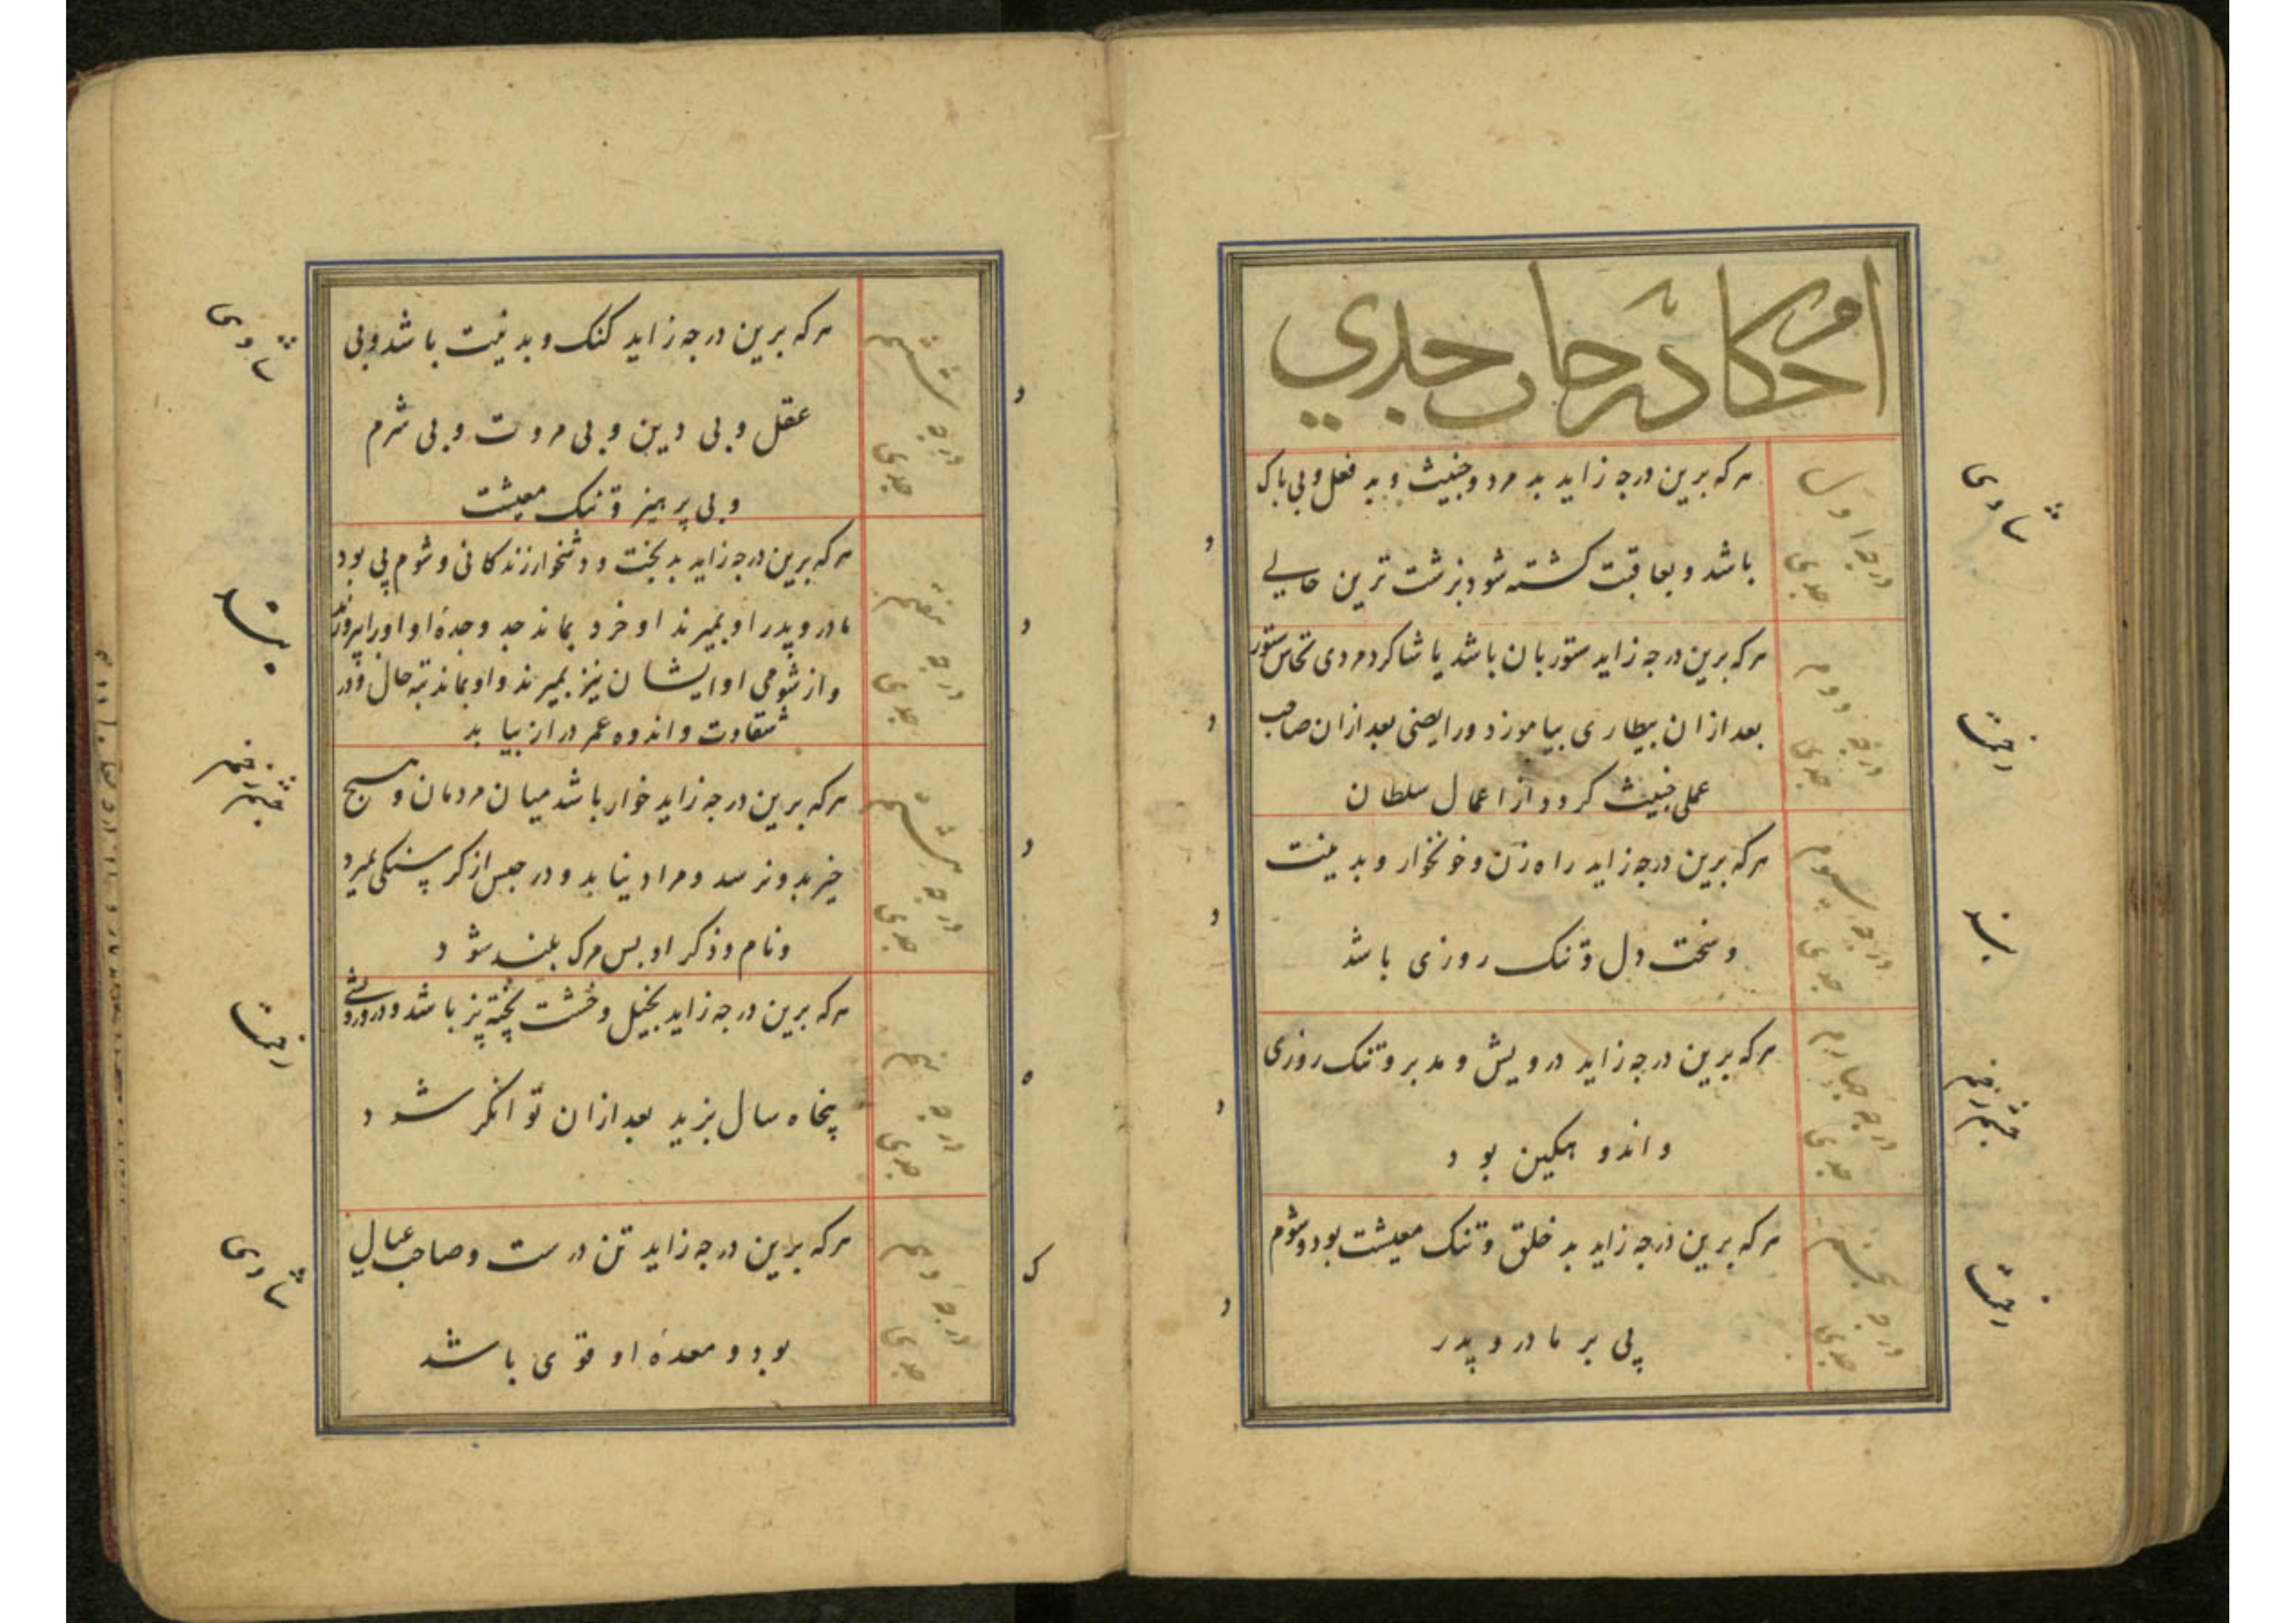 احکام درجات جدی
درجه اول
جدی
هرکه برین درجه زاید بد مرد و خبیث و بد فعل و بی باک
باشد و بعاقبت کشته شود بزشت ترین حالی
درجه دوم
جدی
هرکه برین درجه زاید ستوربان باشد یا شاکرد مردی نخاس ستور
بعد ازان بیطاری بیاموزد و رایضی بعد ازان صاحب
عملی خبیث کردد از اعمال سلطان
درجه سیوم
جدی
هرکه برین درجه زاید راه زن و خونخوار و بد نیت
و سخت دل و تنک روزی باشد
درجه چهارم
جدی
هرکه برین درجه زاید درویش و مدبر و تنک روزی
و اندوهکین بود
درجه پنجم
جدی
هرکه برین درجه زاید بد خلق و تنک معیشت بود و شوم
پی بر مادر و پدر
ششم
درجه
جدی
هرکه برین درجه زاید کنک و بد نیت باشد و بی
عقل و بی دین و بی مروت و بی شرم
و بی پرهیز و تنک معیشت
هفتم
درجه
جدی
هرکه برین درجه زاید بدبخت و دشخوار زندکانی و شوم پی بود
مادر و پدر او بمیرند او خرد بماند جد و جدهٔ او اورا بپرورند
و از شومی او ایشان نیز بمیرند و او بماند تبه حال و در
شقاوت و اندوه عمر دراز بیابد
هشتم
درجه
جدی
هرکه برین درجه زاید خوار باشد میان مردمان و هیچ
خیر بدو نرسد و مراد نیابد و در حبس از کرسنکی بمیرد
و نام و ذکر او پس مرک بلند شود
نهم
درجه
جدی
هرکه برین درجه زاید بخیل و خشت پخته پز باشد و در درویشی
پنجاه سال بزید بعد ازان توانکر شود
درجه دهم
جدی
هرکه برین درجه زاید تن درست و صاحب عیال
بود و معدهٔ او قوی باشد